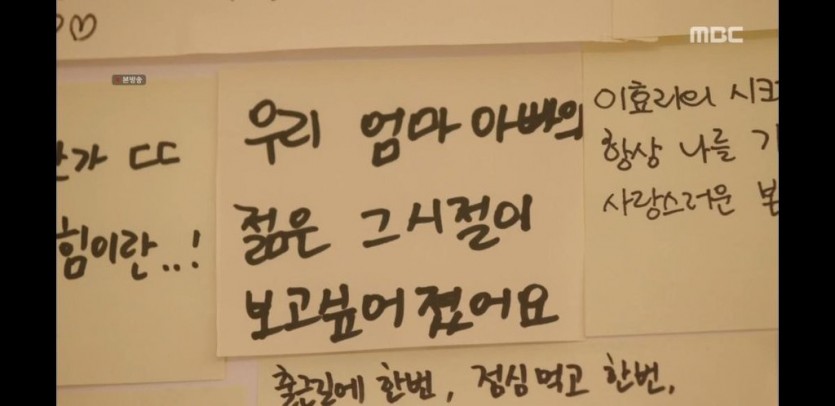 MBC
본방송
우리 엄마 아빠의
젊은 그 시절이
보고싶어졌어요
ㄷㄷ
힘이란..!
이효리의
항상 나를
사랑스러운
출근길에 한번, 점심먹고 한번,